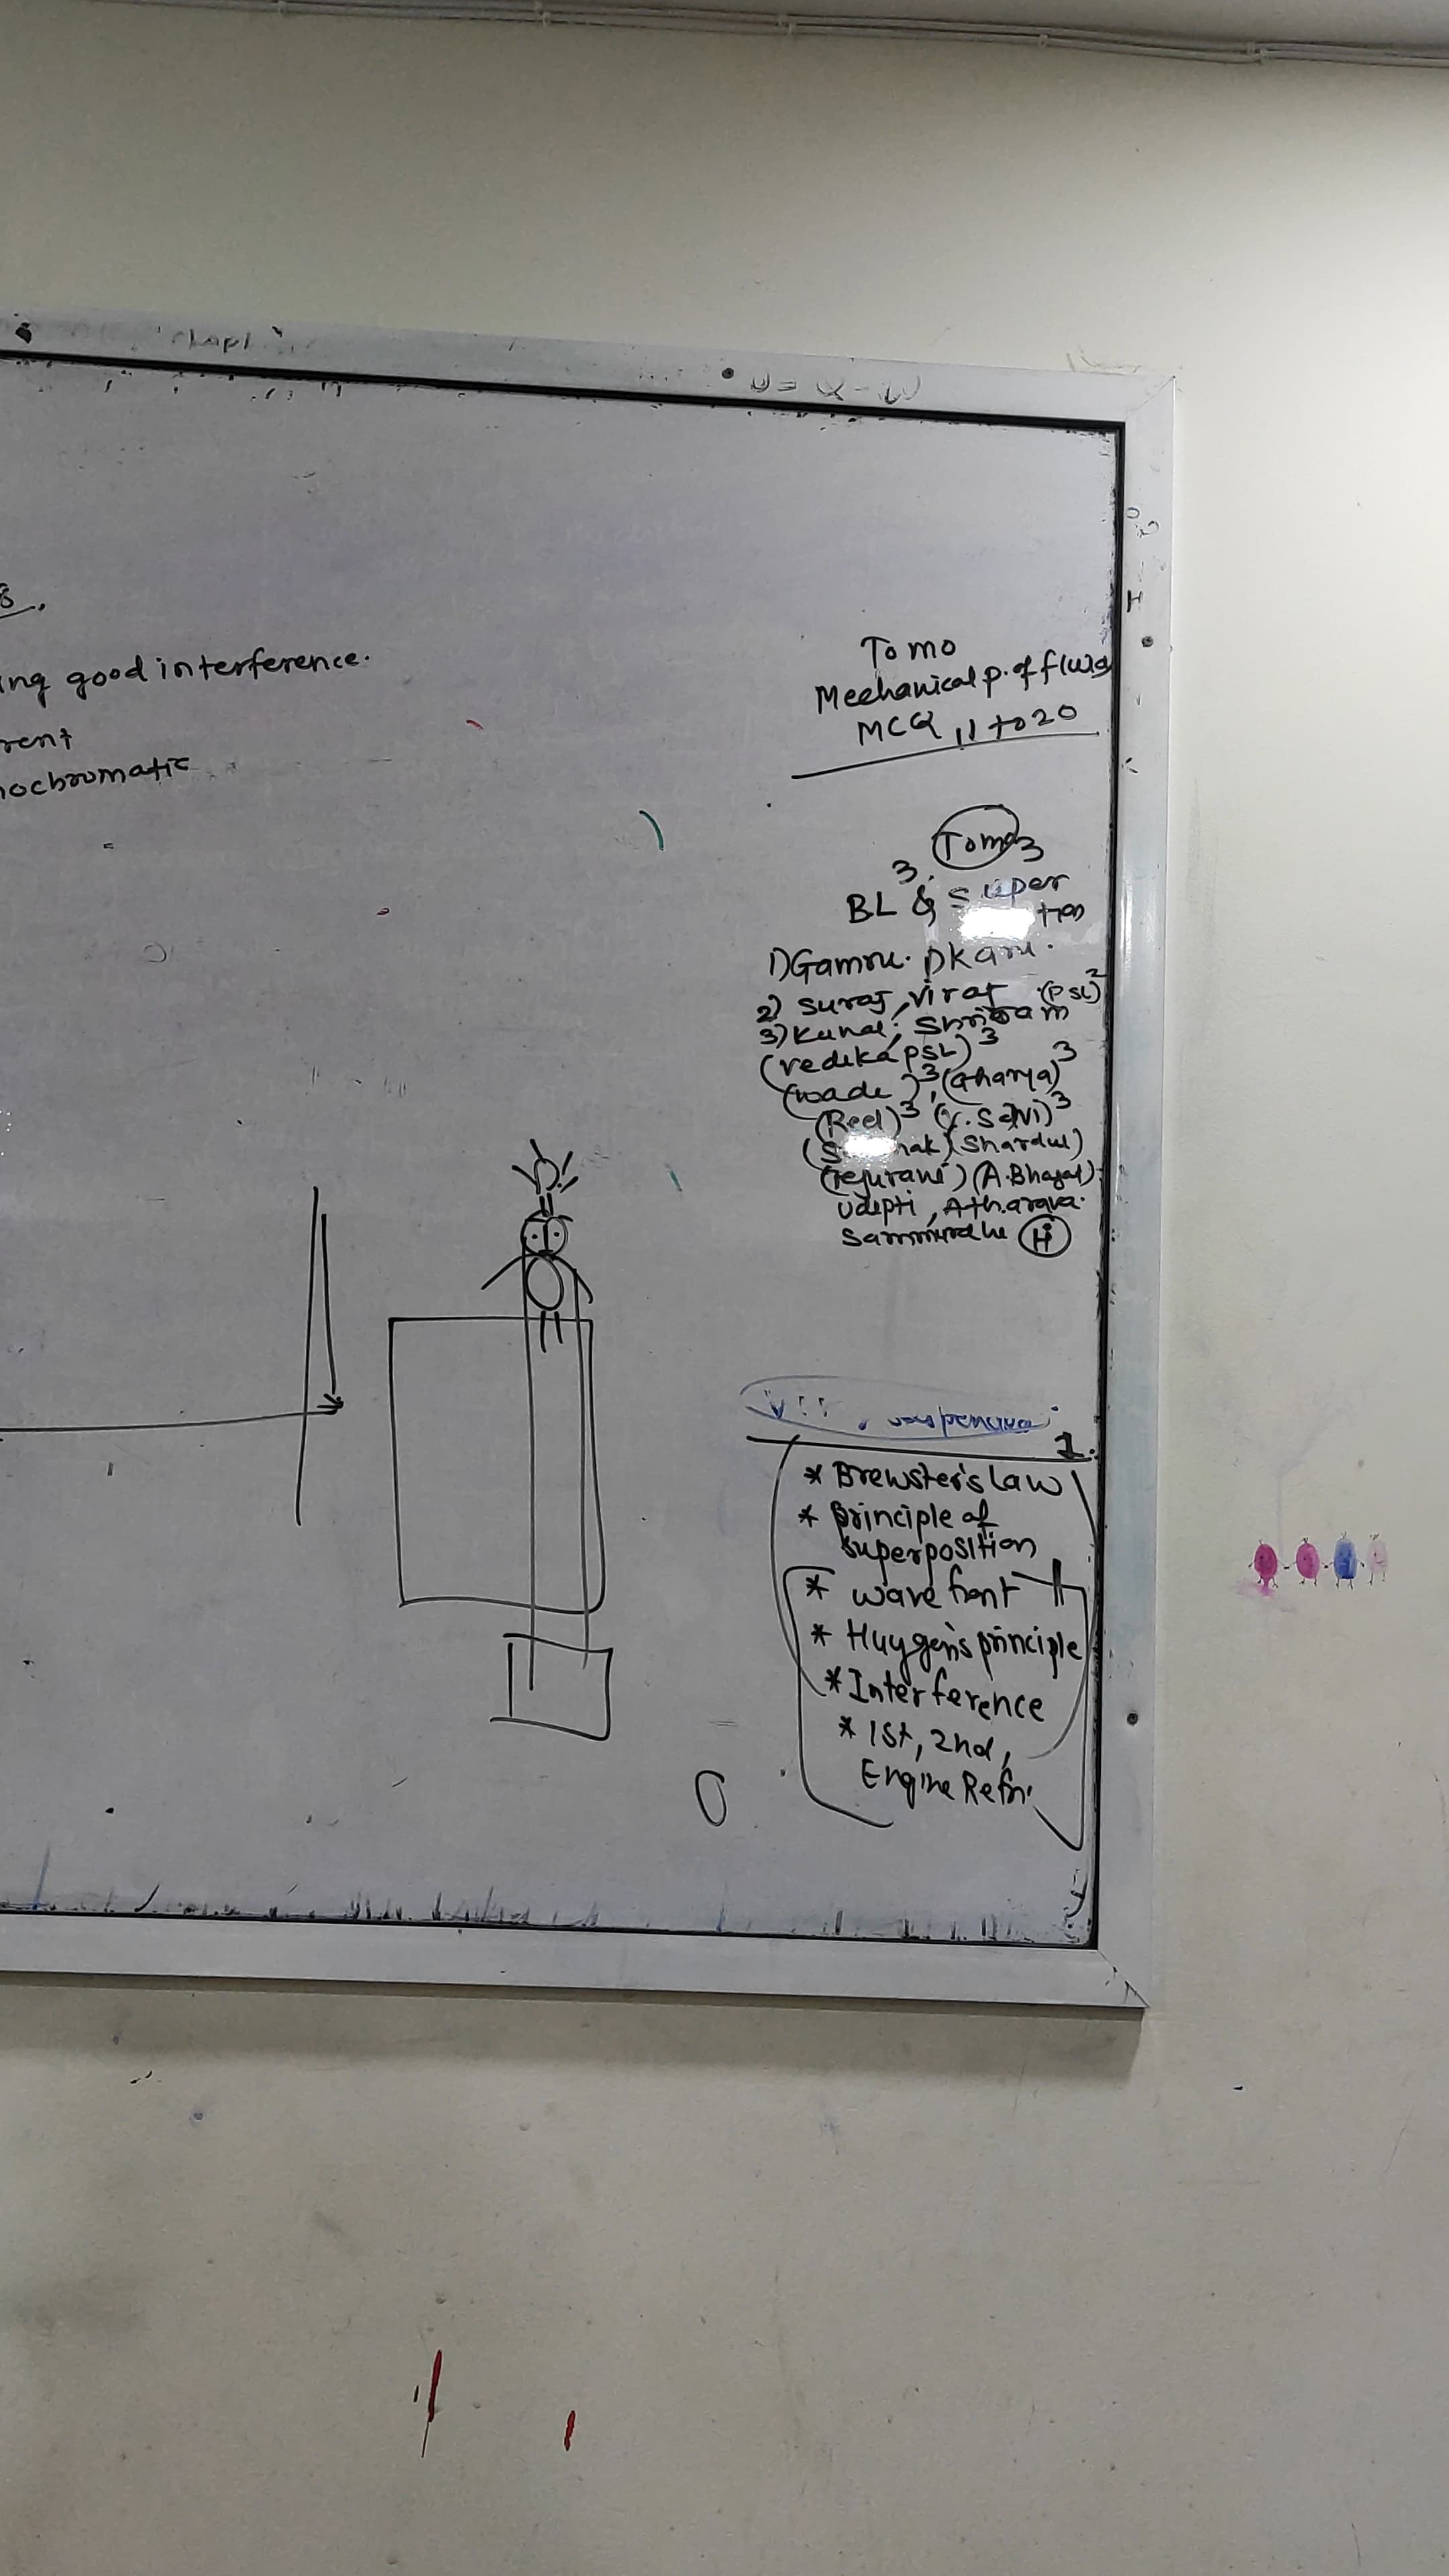 good interference.
Tomo
Mechanical p. of fluids
MCQ 11 to 20
Tomo 3
BL 3 & super
tion
1) Gamru. 1) Karu.
2) Suraj, Viraj (PSL)2
3) Kunal, Shriram
(vedika PSL)3
(wade)3, (Gharya)3
(Reel)3 (V. Salvi)3
(Shardul)
(Tejurane) (A. Bhagat)
Udipti, Atharava.
Sammurdhe Hi
1.
* Brewster's Law
* principle of
superposition
* wave front
* Huygen's principle
* Interference
* 1st, 2nd,
Engine Refri.